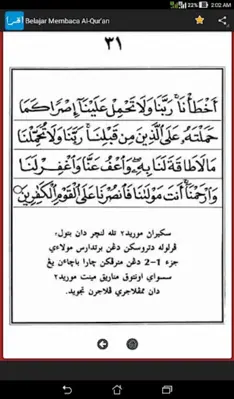 84% 2:02 AM
Belajar Membaca Al-Qur'an
٣١
أَخْطَأْنَا ۚ رَبَّنَا وَلَا تَحْمِلْ عَلَيْنَا إِصْرًا كَمَا
حَمَلْتَهُ عَلَى الَّذِينَ مِن قَبْلِنَا ۚ رَبَّنَا وَلَا تُحَمِّلْنَا
مَا لَا طَاقَةَ لَنَا بِهِ ۖ وَاعْفُ عَنَّا وَاغْفِرْ لَنَا
وَارْحَمْنَا ۚ أَنتَ مَوْلَانَا فَانصُرْنَا عَلَى الْقَوْمِ الْكَافِرِينَ
سكيران موريد٢ تله لنچر دان بتول،
ڤرلوله دتروسكن دڠن برتدارس مولاءي
جزء 1-2 دڠن منرڤكن چارا باچاءن يڠ
سسواي اونتوق مناريق مينت موريد٢
دان ممڤلاجري ڤلاجرن تجويد.